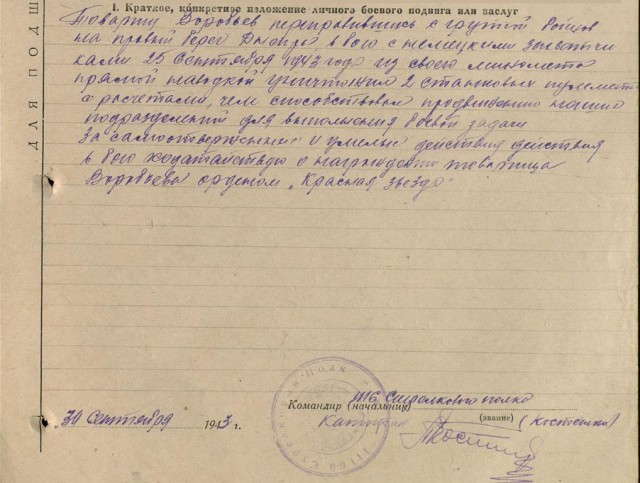 I. Краткое, конкретное изложение личного боевого подвига или заслуг
Товарищ Воробьев переправившись с группой бойцов
на правый берег Днепра, в бою с немецкими захватчи
ками 25 Сентября 1943 года из своего миномета
прямой наводкой уничтожил 2 станковых пулемета
с расчетами, чем способствовал продвижению наших
подразделений для выполнения боевой задачи
За самоотверженные и умелые действия действия
в бою ходатайствую о награждении товарища
Воробьева орденом „Красная звезда"
ДЛЯ ПОДШ
Стрелкового полка
Командир (начальник)
Капитан (звание) (Костенко)
„30 Сентября 1943 г.